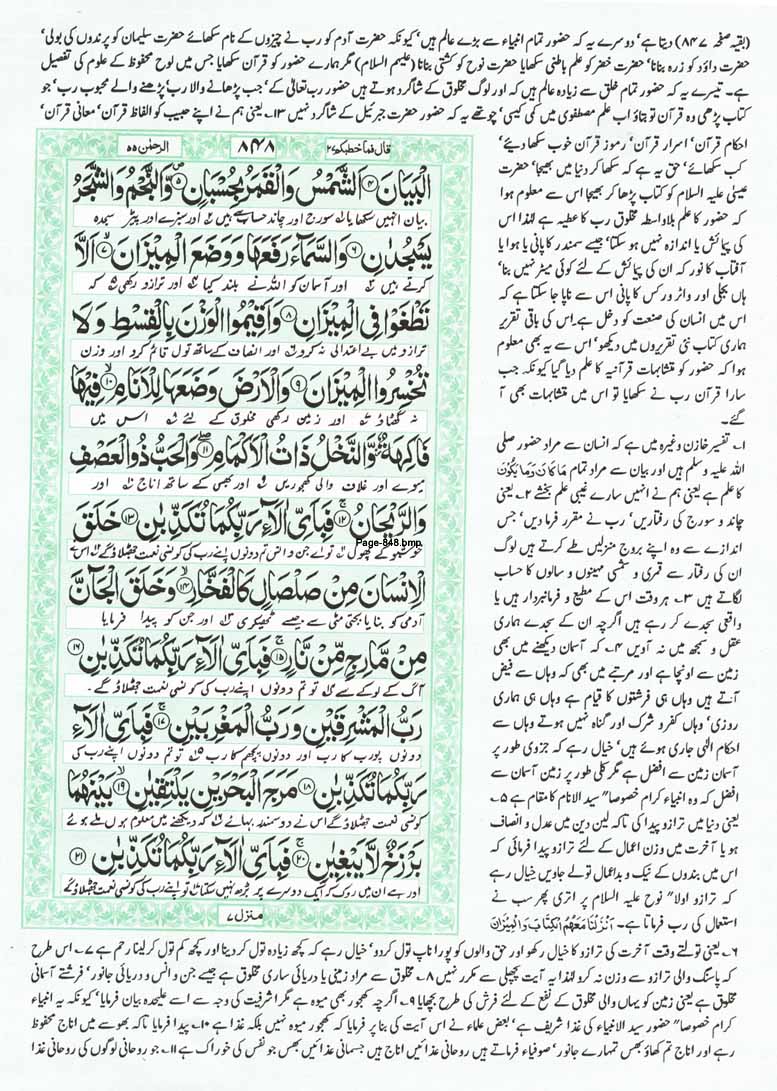 (بقیہ صفحہ ۸۴۷) دیتا ہے' دوسرے یہ کہ حضور تمام انبیاء سے بڑے عالم ہیں' کیونکہ حضرت آدم کو رب نے چیزوں کے نام سکھائے حضرت سلیمان کو پرندوں کی بولی'
حضرت داؤد کو زرہ بنانا' حضرت خضر کو علم باطنی سکھایا حضرت نوح کو کشتی بنانا (علیہم السلام) مگر ہمارے حضور کو قرآن سکھایا جس میں لوح محفوظ کے علوم کی تفصیل
ہے۔ تیسرے یہ کہ حضور تمام خلق سے زیادہ عالم ہیں کہ اور لوگ مخلوق کے شاگرد ہوتے ہیں حضور رب تعالٰی کے' جب پڑھانے والا رب' پڑھنے والے محبوب رب' جو
کتاب پڑھی وہ قرآن تو بتاؤ اب علم مصطفوی میں کمی کیسی' چوتھے یہ کہ حضور حضرت جبرئیل کے شاگرد نہیں ۱۳۔ یعنی ہم نے اپنے حبیب کو الفاظ قرآن' معانی قرآن'
احکام قرآن' اسرار قرآن' رموز قرآن خوب سکھا دیئے'
کب سکھائے' حق یہ ہے کہ سکھا کر دنیا میں بھیجا' حضرت
عیسٰی علیہ السلام کو کتاب پڑھا کر بھیجا اس سے معلوم ہوا
کہ حضور کا علم بلاواسطہ مخلوق رب کا عطیہ ہے لہٰذا اس
کی پیمائش یا اندازہ نہیں ہو سکتا' جیسے سمندر کا پانی یا ہوا یا
آفتاب کا نور کہ ان کی پیمائش کے لئے کوئی میٹر نہیں بنا'
ہاں بجلی اور واٹر ورکس کا پانی اس سے ناپا جا سکتا ہے کہ
اس میں انسان کی صنعت کو دخل ہے۔ اس کی باقی تقریر
ہماری کتاب نئی تقریروں میں دیکھو' اس سے یہ بھی معلوم
ہوا کہ حضور کو متشابہات قرآنیہ کا علم دیا گیا کیونکہ جب
سارا قرآن رب نے سکھایا تو اس میں متشابہات بھی آ
گئے۔
۱۔ تفسیر خازن وغیرہ میں ہے کہ انسان سے مراد حضور صلی
اللہ علیہ وسلم ہیں اور بیان سے مراد تمام مَا كَانَ وَمَا يَكُوْن
کا علم ہے یعنی ہم نے انہیں سارے غیبی علم بخشے ۲۔ یعنی
چاند و سورج کی رفتاریں' رب نے مقرر فرما دیں' جس
اندازے سے وہ اپنے بروج منزلیں طے کرتے ہیں لوگ
ان کی رفتار سے قمری و شمسی مہینوں و سالوں کا حساب
لگاتے ہیں ۳۔ ہر وقت اس کے مطیع و فرمانبردار ہیں یا
واقعی سجدے کر رہے ہیں اگرچہ ان کے سجدے ہماری
عقل و سمجھ میں نہ آویں ۴۔ کہ آسمان دیکھنے میں بھی
زمین سے اونچا ہے اور مرتبے میں بھی کہ وہاں سے فیض
آتے ہیں وہاں ہی فرشتوں کا قیام ہے وہاں ہی ہماری
روزی' وہاں کفر و شرک اور گناہ نہیں ہوتے وہاں سے
احکام الٰہی جاری ہوئے ہیں' خیال رہے کہ جزوی طور پر
آسمان زمین سے افضل ہے مگر کلی طور پر زمین آسمان سے
افضل کہ وہ انبیاء کرام خصوصا" سید الانام کا مقام ہے ۵۔
یعنی دنیا میں ترازو پیدا کی تاکہ لین دین میں عدل و انصاف
ہو یا آخرت میں وزن اعمال کے لئے ترازو پیدا فرمائی کہ
اس میں بندوں کے نیک و بد اعمال تولے جاویں خیال رہے
کہ ترازو اولا" نوح علیہ السلام پر اتری پھر سب نے
استعمال کی رب فرماتا ہے۔ اَنْزَلْنَا مَعَهُمُ الْكِتَابَ وَالْمِيْزَانَ
قال فما خطبکم ۲۷ ۸۴۸ الرحمٰن ۵۵
الْبَيَانَ ۴ اَلشَّمْسُ وَالْقَمَرُ بِحُسْبَانٍ ۵ وَّالنَّجْمُ وَالشَّجَرُ
بیان انہیں سکھایا سورج اور چاند حساب سے ہیں اور سبزے اور پیڑ سجدہ
يَسْجُدٰنِ ۶ وَالسَّمَآءَ رَفَعَهَا وَوَضَعَ الْمِيْزَانَ ۷ اَلَّا
کرتے ہیں اور آسمان کو اللہ نے بلند کیا اور ترازو رکھی کہ
تَطْغَوْا فِي الْمِيْزَانِ ۸ وَاَقِيْمُوا الْوَزْنَ بِالْقِسْطِ وَلَا
ترازو میں بے اعتدالی نہ کرو اور انصاف کے ساتھ تول قائم کرو اور وزن
تُخْسِرُوا الْمِيْزَانَ ۹ وَالْاَرْضَ وَضَعَهَا لِلْاَنَامِ ۱۰ فِيْهَا
نہ گھٹاؤ اور زمین رکھی مخلوق کے لئے اس میں
فَاكِهَةٌ وَّالنَّخْلُ ذَاتُ الْاَكْمَامِ ۱۱ وَالْحَبُّ ذُو الْعَصْفِ
میوے اور غلاف والی کھجوریں اور بھس کے ساتھ اناج اور
وَالرَّيْحَانُ ۱۲ فَبِاَيِّ اٰلَآءِ رَبِّكُمَا تُكَذِّبٰنِ ۱۳ خَلَقَ
خوشبو کے پھول تو اے جن و انس تم دونوں اپنے رب کی کونسی نعمت جھٹلاؤ گے اس نے
Page-848.bmp
الْاِنْسَانَ مِنْ صَلْصَالٍ كَالْفَخَّارِ ۱۴ وَخَلَقَ الْجَآنَّ
آدمی کو بنایا بجتی مٹی سے جیسے ٹھیکری اور جن کو پیدا فرمایا
مِنْ مَّارِجٍ مِّنْ نَّارٍ ۱۵ فَبِاَيِّ اٰلَآءِ رَبِّكُمَا تُكَذِّبٰنِ ۱۶
آگ کے لوکے سے تو تم دونوں اپنے رب کی کونسی نعمت جھٹلاؤ گے۔
رَبُّ الْمَشْرِقَيْنِ وَرَبُّ الْمَغْرِبَيْنِ ۱۷ فَبِاَيِّ اٰلَآءِ
دونوں پورب کا رب اور دونوں پچھم کا رب تو تم دونوں اپنے رب کی
رَبِّكُمَا تُكَذِّبٰنِ ۱۸ مَرَجَ الْبَحْرَيْنِ يَلْتَقِيٰنِ ۱۹ بَيْنَهُمَا
کونسی نعمت جھٹلاؤ گے اس نے دو سمندر بہائے کہ دیکھنے میں معلوم ہوں ملے ہوئے
بَرْزَخٌ لَّا يَبْغِيٰنِ ۲۰ فَبِاَيِّ اٰلَآءِ رَبِّكُمَا تُكَذِّبٰنِ ۲۱
اور ہے ان میں روک کہ ایک دوسرے پر بڑھ نہیں سکتا تو اپنے رب کی کونسی نعمت جھٹلاؤ گے
منزل ۷
۶۔ یعنی تولتے وقت آخرت کی ترازو کا خیال رکھو اور حق والوں کو پورا ناپ تول کر دو' خیال رہے کہ کچھ زیادہ تول کر دینا اور کچھ کم تول کر لینا رحم ہے ۷۔ اس طرح
کہ پاسنگ والی ترازو سے وزن نہ کرو لہٰذا یہ آیت پچھلی سے مکرر نہیں ۸۔ مخلوق سے مراد زمینی یا دریائی ساری مخلوق ہے جیسے جن و انس و دریائی جانور' فرشتے آسمانی
مخلوق ہے یعنی زمین کو یہاں والی مخلوق کے نفع کے لئے فرش کی طرح بچھایا ۹۔ اگرچہ کھجور بھی میوہ ہے مگر اشرفیت کی وجہ سے اسے علیحدہ بیان فرمایا' کیونکہ یہ انبیاء
کرام خصوصا" حضور سید الانبیاء کی غذا شریف ہے' بعض علماء نے اس آیت کی بنا پر فرمایا کہ کھجور میوہ نہیں بلکہ غذا ہے ۱۰۔ پیدا فرمایا تاکہ بھوسے میں اناج محفوظ
رہے اور اناج تم کھاؤ بھس تمہارے جانور' صوفیاء فرماتے ہیں روحانی غذائیں اناج ہیں جسمانی غذائیں بھس جو نفس کی خوراک ہے ۱۱۔ جو روحانی لوگوں کی روحانی غذا